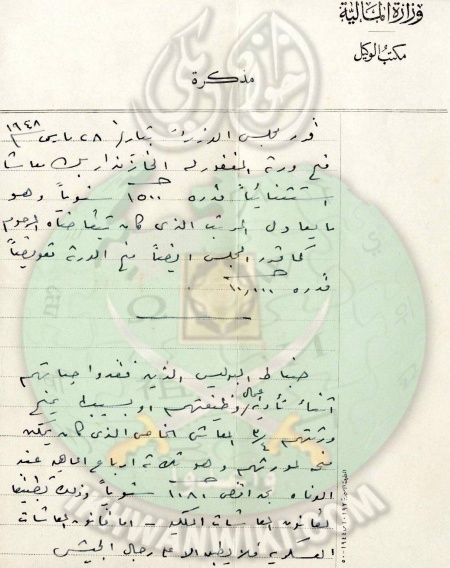 وزارة المالية
مكتب الوكيل
مذكرة
قرر مجلس الوزراء بتاريخ ٢٨ مارس ١٩٤٨
منح ورثة المغفور له الخازندار بك معاشا
استثنائياً قدره ١٥٠٠ جـ سنوياً وهو
ما يعادل المرتب الذى كان يتقاضاه المرحوم
كما قرر المجلس ايضاً منح الورثة تعويضاً
قدره ١٠٫٠٠٠ جـ
ضباط البوليس الذين فقدوا حياتهم
اثناء تأدية أعمال وظيفتهم او بسببها يمنح
ورثتهم ٣/٤ المعاش الخاص الذى كان يمكن
منحه لمورثهم وهو ثلاثة ارباع الماهية عند
الوفاه بحد اقصى ١٠٨١ سنوياً وذلك تطبيقا
لقانون المعاشات الملكية - اما قانون المعاشات
العسكرية فلا يطبق الا على رجال الجيش
IKHWANWIKI.COM